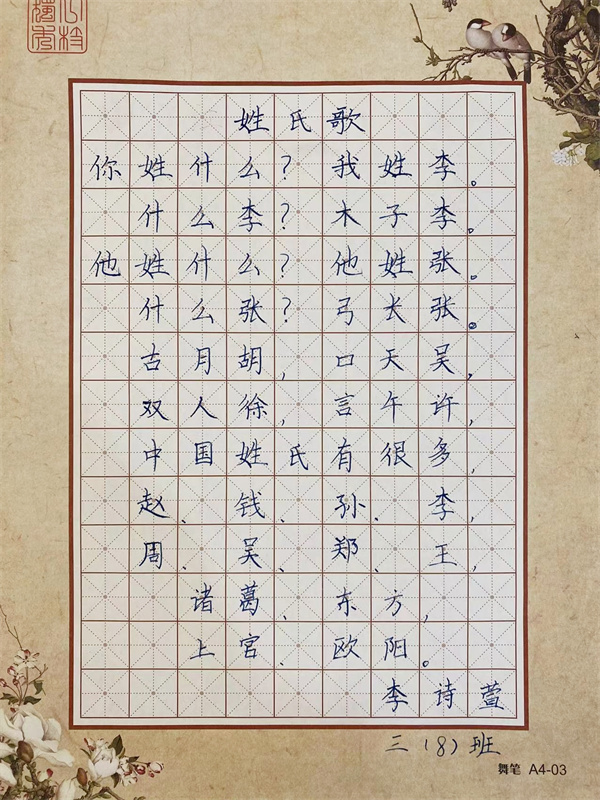 姓氏歌
你姓什么？我姓李。
什么李？木子李。
他姓什么？他姓张。
什么张？弓长张。
古月胡，口天吴，
双人徐，言午许，
中国姓氏有很多，
赵、钱、孙、李，
周、吴、郑、王，
诸葛、东方，
上官、欧阳。
李诗萱
三（8）班
舞笔 A4-03